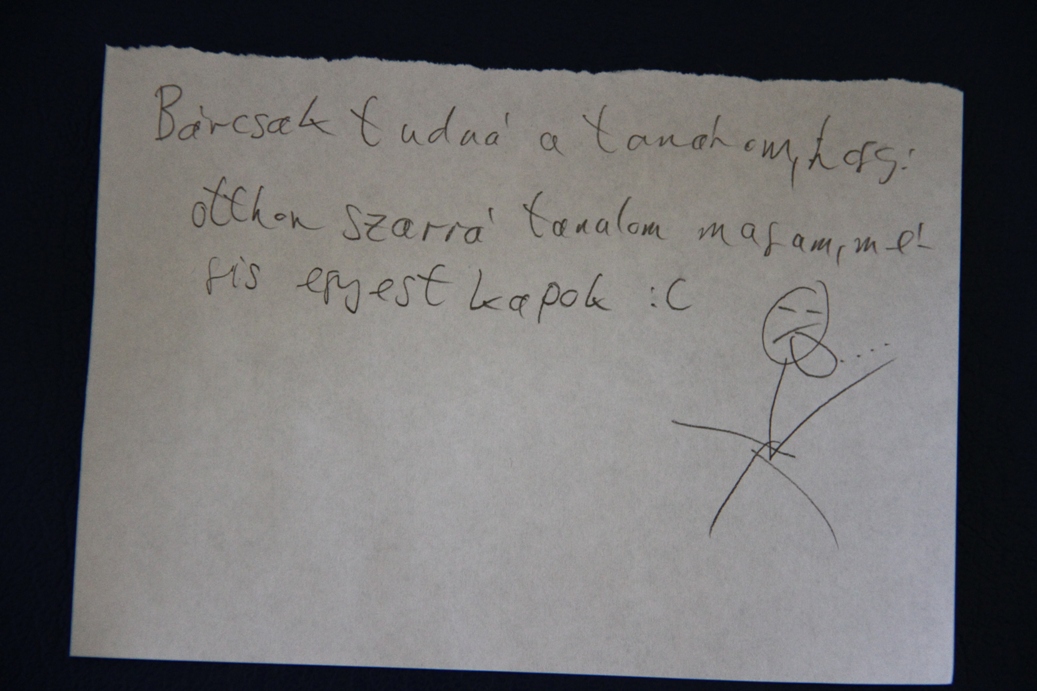 Bárcsak tudná a tanárom, hogy
otthon szarrá tanulom magam, mé-
gis egyest kapok :C